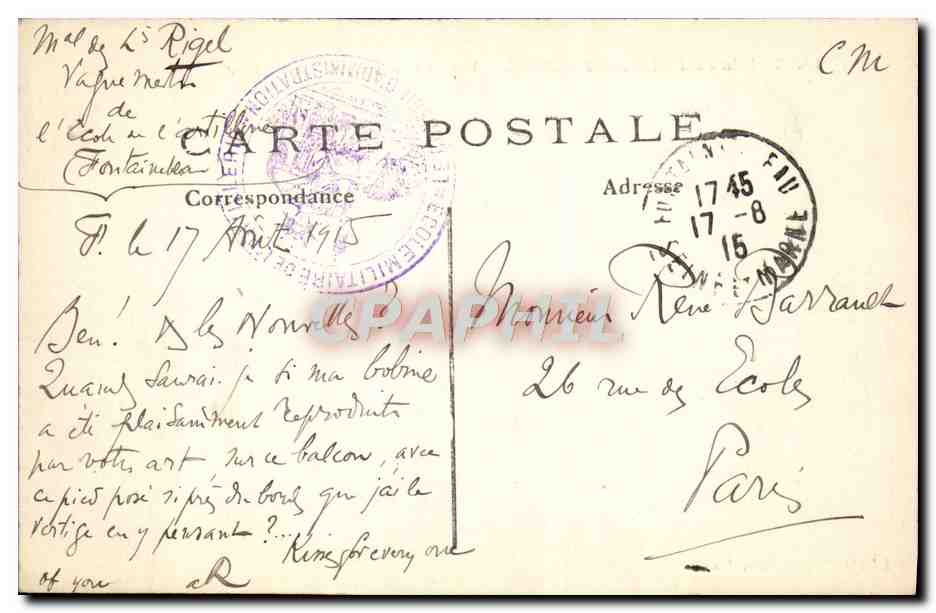 Mal des Lis Rigel
Vaguemestre
de
l'École de l'artillerie
Fontainebleau
CM
CARTE POSTALE
Correspondance
Adresse
ÉCOLE MILITAIRE DE L'
D'ADMINISTRATION
FONTAINEBLEAU
17 45
17 -8
15
MARNE
F. le 17 Août 1915
Ben! & les Nouvelles?
Quand saurai-je si ma bobine
a été plaisamment reproduite
par votre art, sur ce balcon, avec
ce pied posé si près du bord que j'ai le
vertige en y pensant?...
Kisses for every one
of you aR
Monsieur René Barranet
26 rue des Ecoles
Paris
CPAPHIL